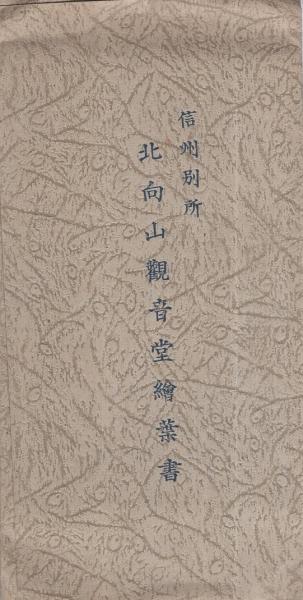 信州別所
北向山觀音堂繪葉書